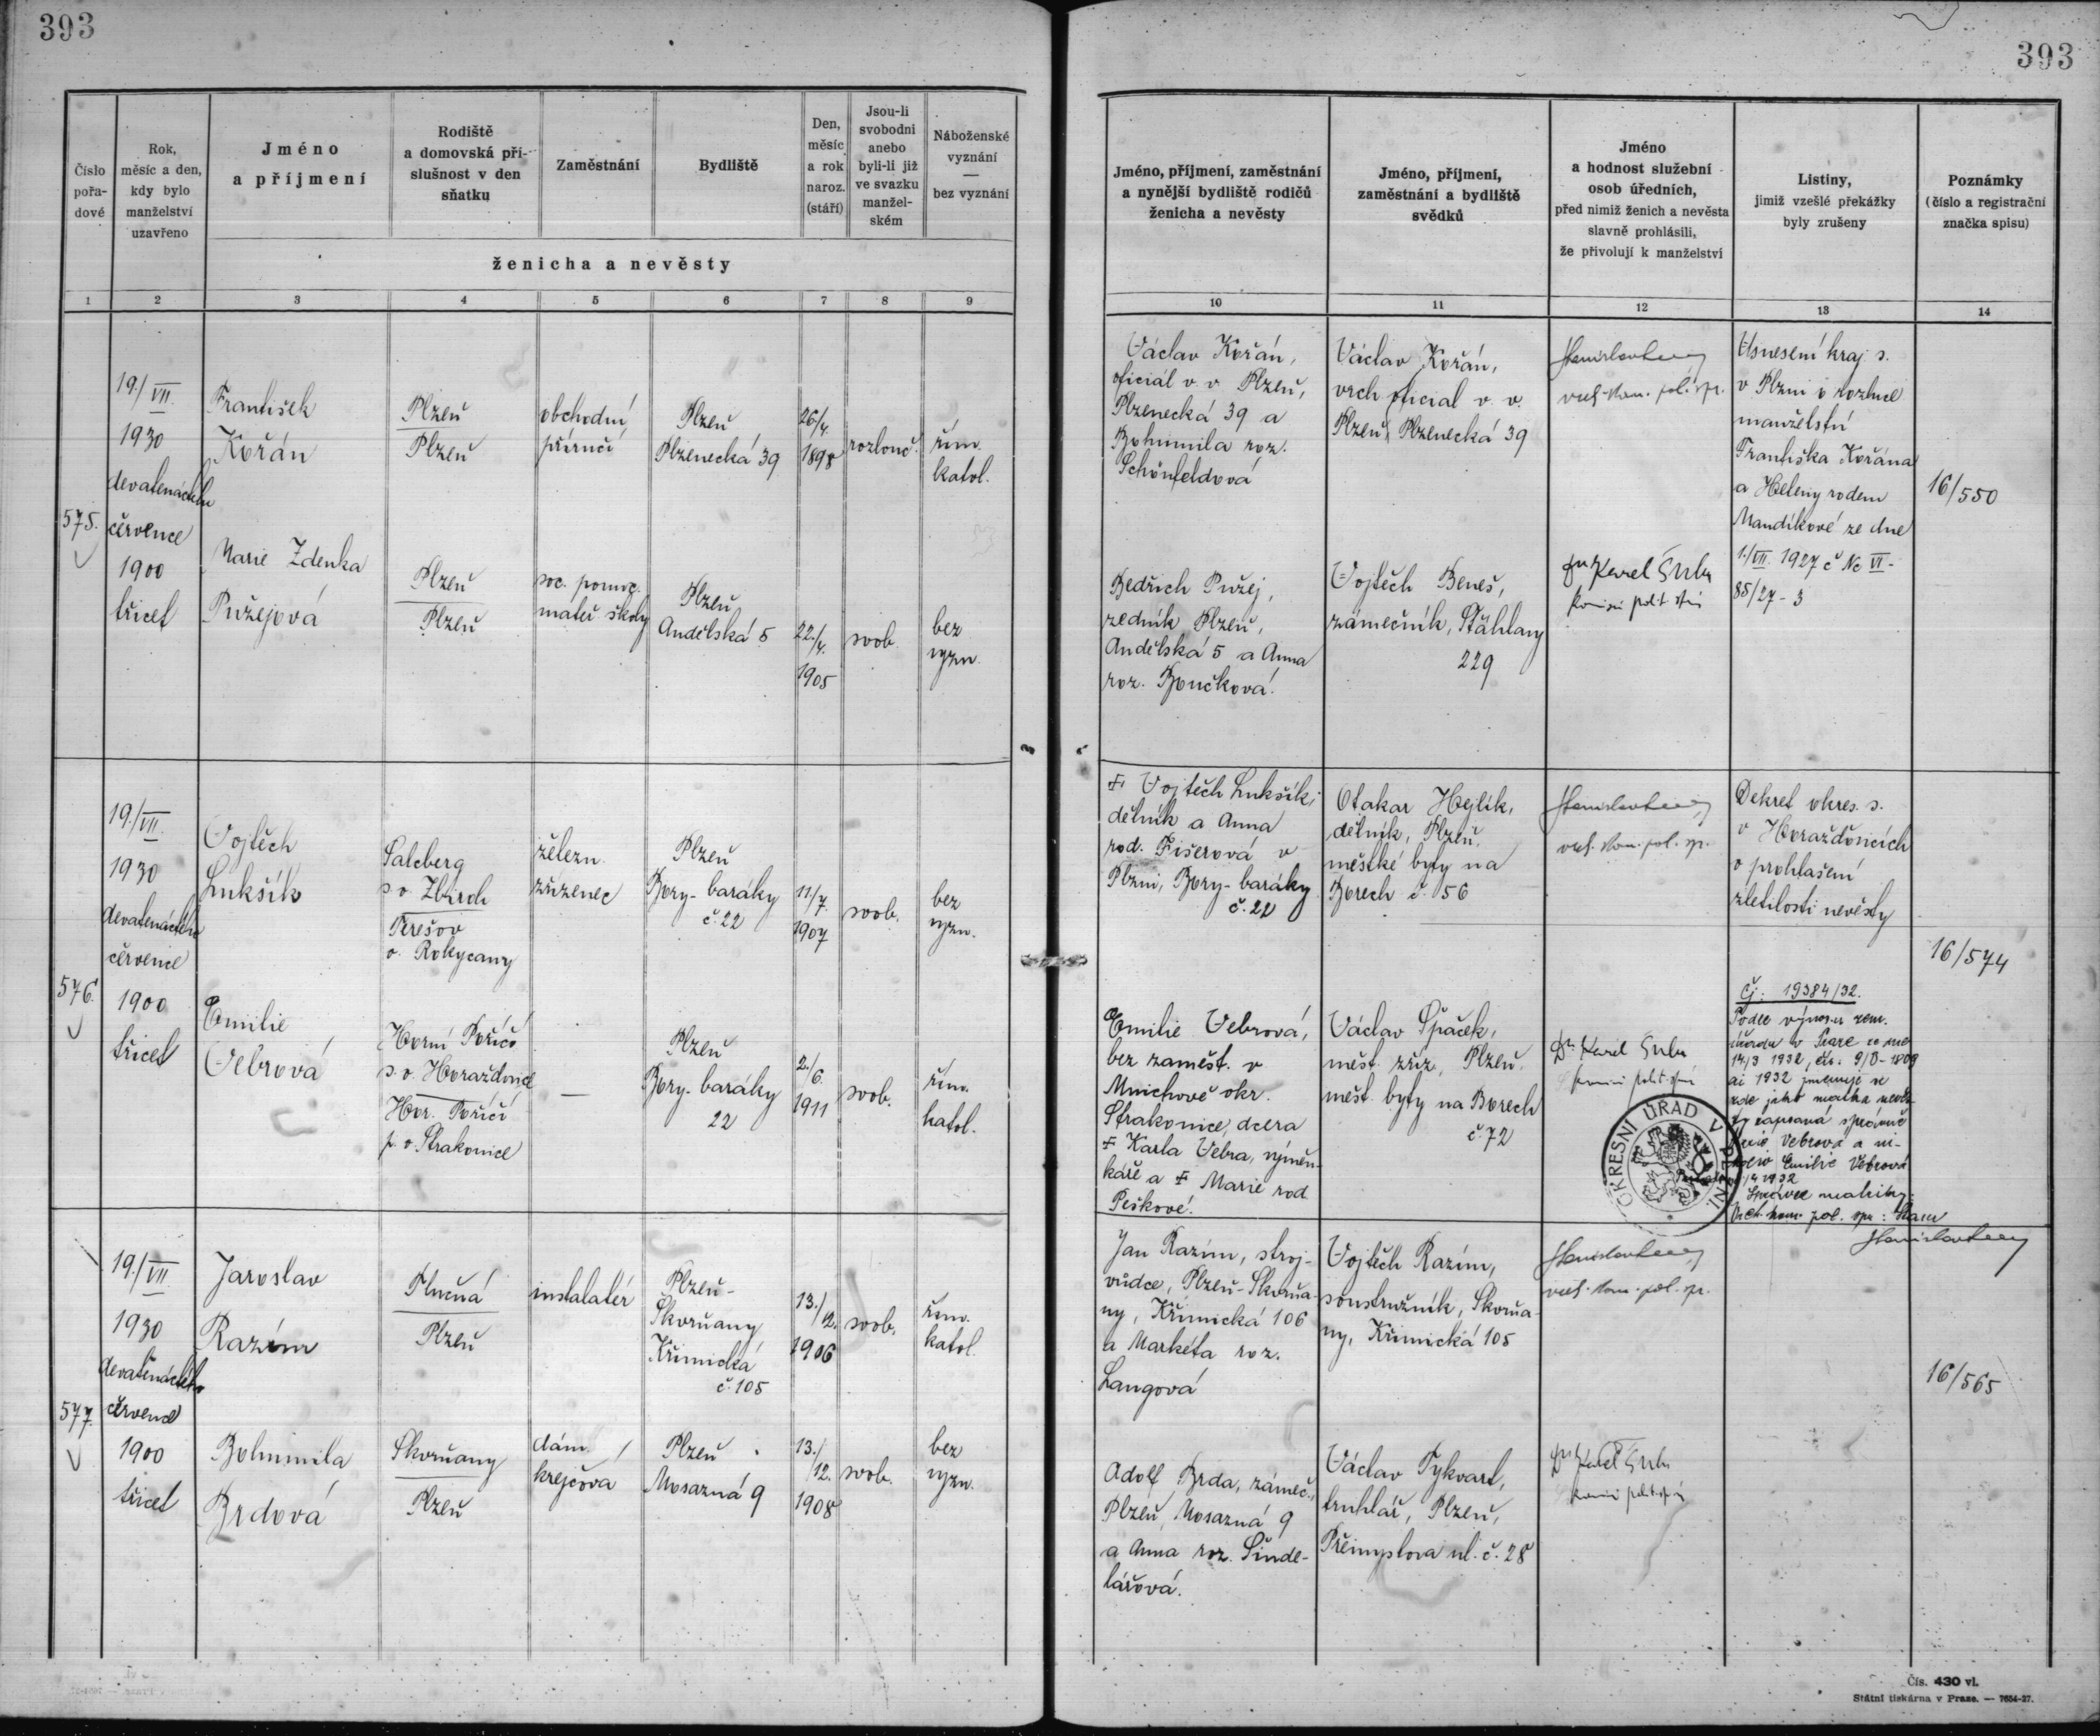 393
393
Číslo
pořa-
dové
Rok,
měsíc a den,
kdy bylo
manželství
uzavřeno
Jméno
a příjmení
Rodiště
a domovská pří-
slušnost v den
sňatku
Zaměstnání
Bydliště
Den,
měsíc
a rok
naroz.
(stáří)
Jsou-li
svobodni
anebo
byli-li již
ve svazku
manžel-
ském
Náboženské
vyznání
—
bez vyznání
ženicha a nevěsty
Jméno, příjmení, zaměstnání
a nynější bydliště rodičů
ženicha a nevěsty
Jméno, příjmení,
zaměstnání a bydliště
svědků
Jméno
a hodnost služební
osob úředních,
před nimiž ženich a nevěsta
slavně prohlásili,
že přivolují k manželství
Listiny,
jimiž vzešlé překážky
byly zrušeny
Poznámky
(číslo a registrační
značka spisu)
1 2 3 4 5 6 7 8 9
10 11 12 13 14
575.
19./VII.
1930
devatenáctého
července
1900
třicet
František
Kořán
Plzeň
Plzeň
obchodní
příručí
Plzeň
Plzenecká 39
26/4.
1898
rozlouč.
řím.
katol.
Marie Zdenka
Pužejová
Plzeň
Plzeň
soc. pomoc.
mateř školy
Plzeň
Andělská 5
22./4.
1905
svob.
bez
vyzn.
Václav Kořán,
oficiál v. v. Plzeň,
Plzenecká 39 a
Bohumila roz.
Schönfeldová
Václav Kořán,
vrch. oficial v. v.
Plzeň, Plzenecká 39
vrch. kom. pol. spr.
Usnesení kraj s.
v Plzni o rozluce
manželství
Františka Kořána
a Heleny rodem
Mandíkové ze dne
1./VII. 1927 č Nc VI-
85/27-3
16/550
Bedřich Pužej,
zedník Plzeň,
Andělská 5 a Anna
roz. Boučková.
Vojtěch Beneš,
zámečník, Šťáhlavy
229
Dr Karel
576.
19./VII.
1930
devatenáctého
července
1900
třicet
Vojtěch
Lukšík
Salcberg
s. o. Zbiroh
Terešov
o. Rokycany
železn.
zřízenec
Plzeň
Bory-baráky
č. 22
11/7.
1907
svob.
bez
vyzn.
Emilie
Vebrová
Horní Poříčí
s. o. Horažďovice
Hor. Poříčí
p. o. Strakonice
—
Plzeň
Bory-baráky
22
2./6.
1911
svob.
řím.
katol.
Vojtěch Lukšík,
dělník a Anna
rod. Fišerová v
Plzni, Bory-baráky
č. 22
Otakar Hejlík,
dělník, Plzeň,
městské byty na
Borech č. 56
vrch. kom. pol. spr.
Dekret okres. s.
v Horažďovicích
o prohlášení
zletilosti nevěsty
16/574
Emilie Vebrová,
bez zaměst. v
Mnichově okr.
Strakonice, dcera
Karla Vebra, výmin-
káře a Marie rod
Peškové.
Václav Špaček,
měst. zříz., Plzeň.
měst. byty na Borech
č. 72
Dr Karel
čj: 19384/32.
Podle výnosu zem.
úřadu v Praze ze dne
14/3 1932,
ai 1932 jmenuje se
zde jako matka nevěs-
ty zapsaná správně
Vebrová a ni-
koliv Emilie Vebrová
1932
Správce matriky:
Vrch. kom. pol. spr.:
OKRESNÍ ÚŘAD V PLZNI
577.
19./VII.
1930
devatenáctého
července
1900
třicet
Jaroslav
Razím
Plzeň
instalatér
Plzeň-
Skvrňany
Křimická
č. 105
13./12.
1906
svob.
řím.
katol.
Bohumila
Brdová
Skvrňany
Plzeň
dám.
krejčová
Plzeň
Mosazná 9
13./12.
1908
svob.
bez
vyzn.
Jan Razím, stroj-
vůdce, Plzeň-Skvrňa-
ny, Křimická 106
a Markéta roz.
Langová
Vojtěch Razím,
soustružník, Skvrňa-
ny, Křimická 105
vrch. kom. pol. spr.
16/565
Adolf Brda, zámeč.,
Plzeň, Mosazná 9
a Anna roz. Šinde-
lářová.
Václav Tykvart,
truhlář, Plzeň,
Přemyslova ul. č. 28
Dr Karel
Čís. 430 vl.
Státní tiskárna v Praze. — 7654-27.